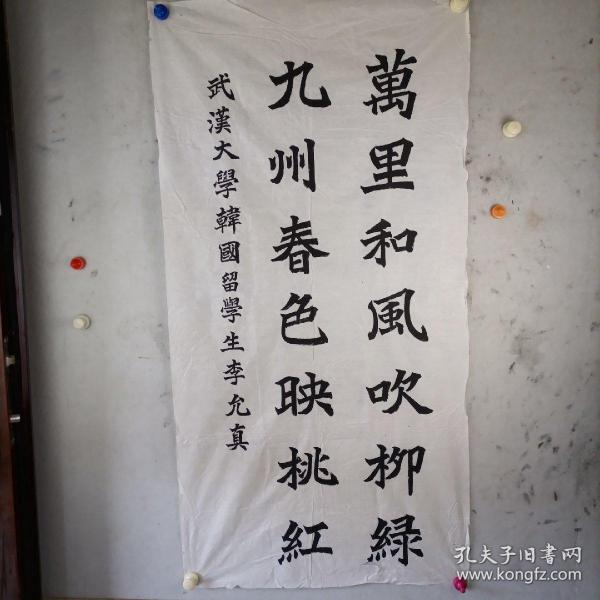 萬里和風吹柳緑
九州春色映桃紅
武漢大學韓國留學生李允真
孔夫子旧書网
www.kongfz.com